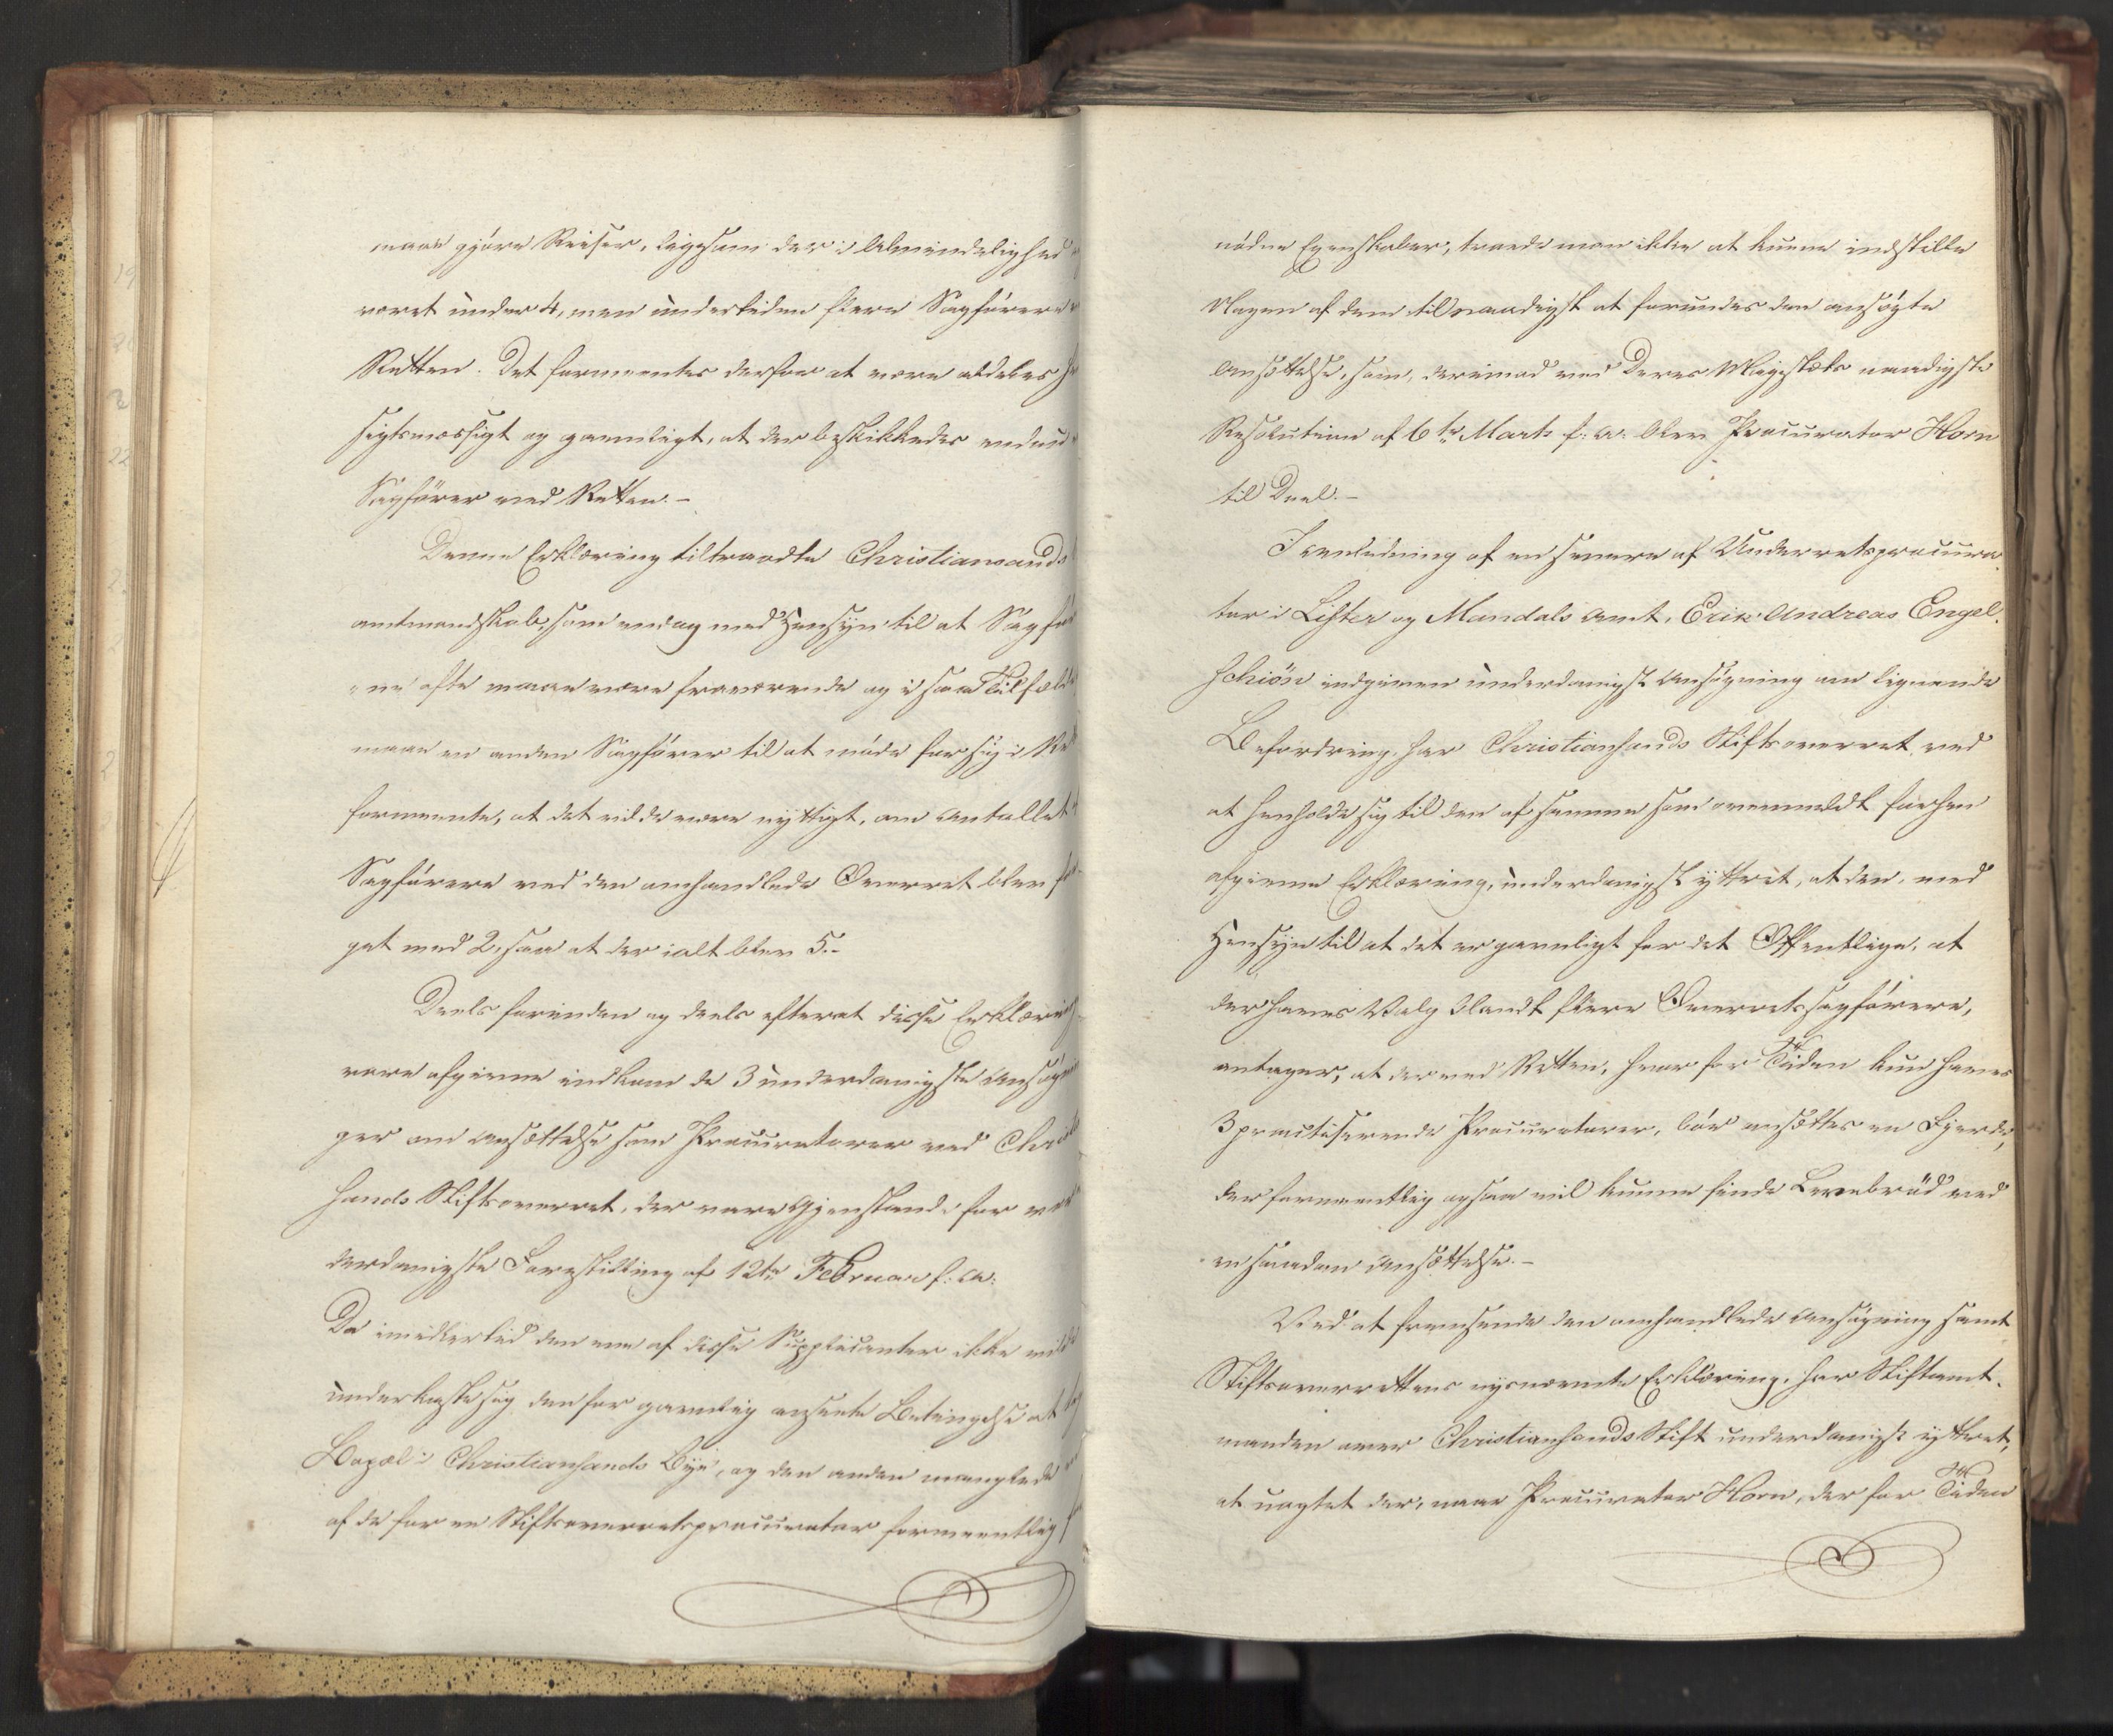 maae gjöre Reiser, ligesom der i Almindelighed
været under 4, men undertiden flere Sagförere
Retten. Det formeentes derfor at være aldeles
sigtsmæssigt og gavnligt, at der beskikkedes endnu
Sagförer ved Retten.-
Denne Erklæring tiltraadte Christiansands
amtmandskab, som endog med Hensyn til at Sagfö
"ne ofte maae være fraværende og i saa Tilfælde
maae en anden Sagförer til at möde for sig i Re
formeente, at det vilde være nyttigt, om Antallet
Sagförere ved den omhandlede Overret blev for
get med 2, saa at der ialt blev 5.-
Deels forinden og deels efterat disse Erklærin
vare afgivne indkom de 3 underdanigste Ansögnin
ger om Ansættelse som Procuratorer ved Christi
sands Stiftsoverret, der vare Gjenstand for
derdanigste Forestilling af 12te Februar f: A:
Da imidlertid den ene af disse Supplicanter ikke vilde
underkaste sig den for gavnlig ansete Betingelse at
Bopæl i Christiansands Bye, og den anden manglede
af de for en Stiftsoverretsprocurator formeentlig
nödne Egenskaber, troede man ikke at kunne indstille
Nogen af dem til naadigst at forundes den ansögte
Ansættelse, som, derimod ved Deres Majestæts naadigste
Resolution af 6te Marts f: A: blev Procurator Horn
til Deel.-
I Anledning af en senere af Underretsprocura
tor i Lister og Mandals Amt, Erik Andreas Engel
schiön indgiven underdanigst Ansögning om lignende
Befordring, har Christiansands Stiftsoverret ved
at henholde sig til den af samme som ovenmeldt forhen
afgivne Erklæring, underdanigst yttret, at den, med
Hensyn til at det er gavnligt for det Offentlige, at
der haves Valg blandt flere Overretssagförere,
antager, at der ved Retten, hvor for Tiden kun haves
3 practiserende Procuratorer, bör ansættes en Fjerde,
der formeentlig ogsaa vil kunne finde Levebröd ved
en saadan Ansættelse.-
Ved at fremsende den omhandlede Ansögning samt
Stiftsoverrettens nysnævnte Erklæring, har Stiftamt
manden over Christiansands Stift underdanigst yttret,
at uagtet der, naar Procurator Horn, der for Tiden